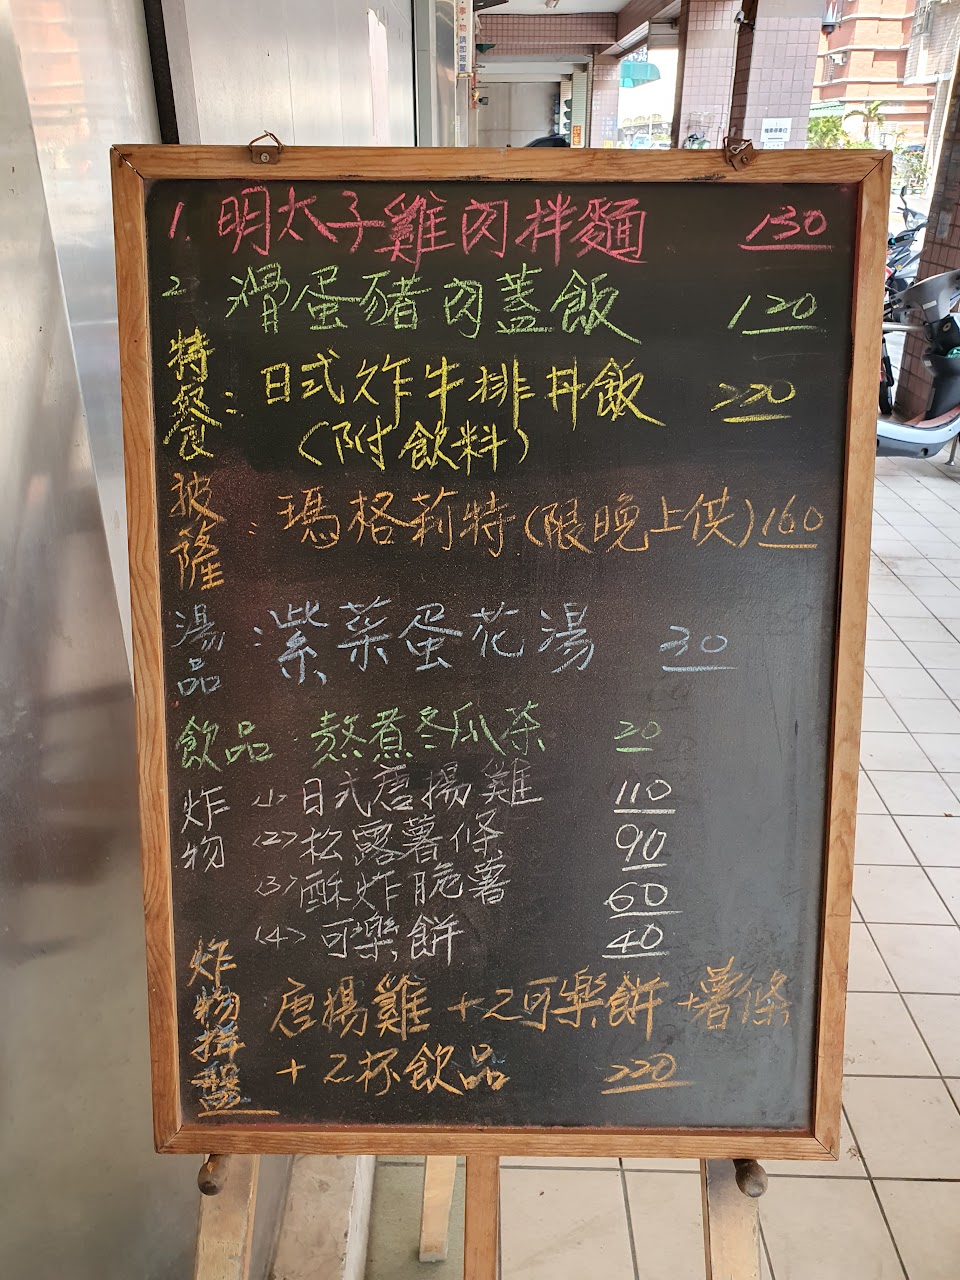 1 明太子雞肉拌麵 130
2 滑蛋豬肉蓋飯 120
特餐: 日式炸牛排丼飯 220
(附飲料)
披薩: 瑪格莉特(限晚上供)160
湯品: 紫菜蛋花湯 30
飲品: 熬煮冬瓜茶 20
炸物 <1> 日式唐揚雞 110
<2> 松露薯條 90
<3> 酥炸脆薯 60
<4> 可樂餅 40
炸物拼盤: 唐揚雞+2可樂餅+薯條
+2杯飲品 220